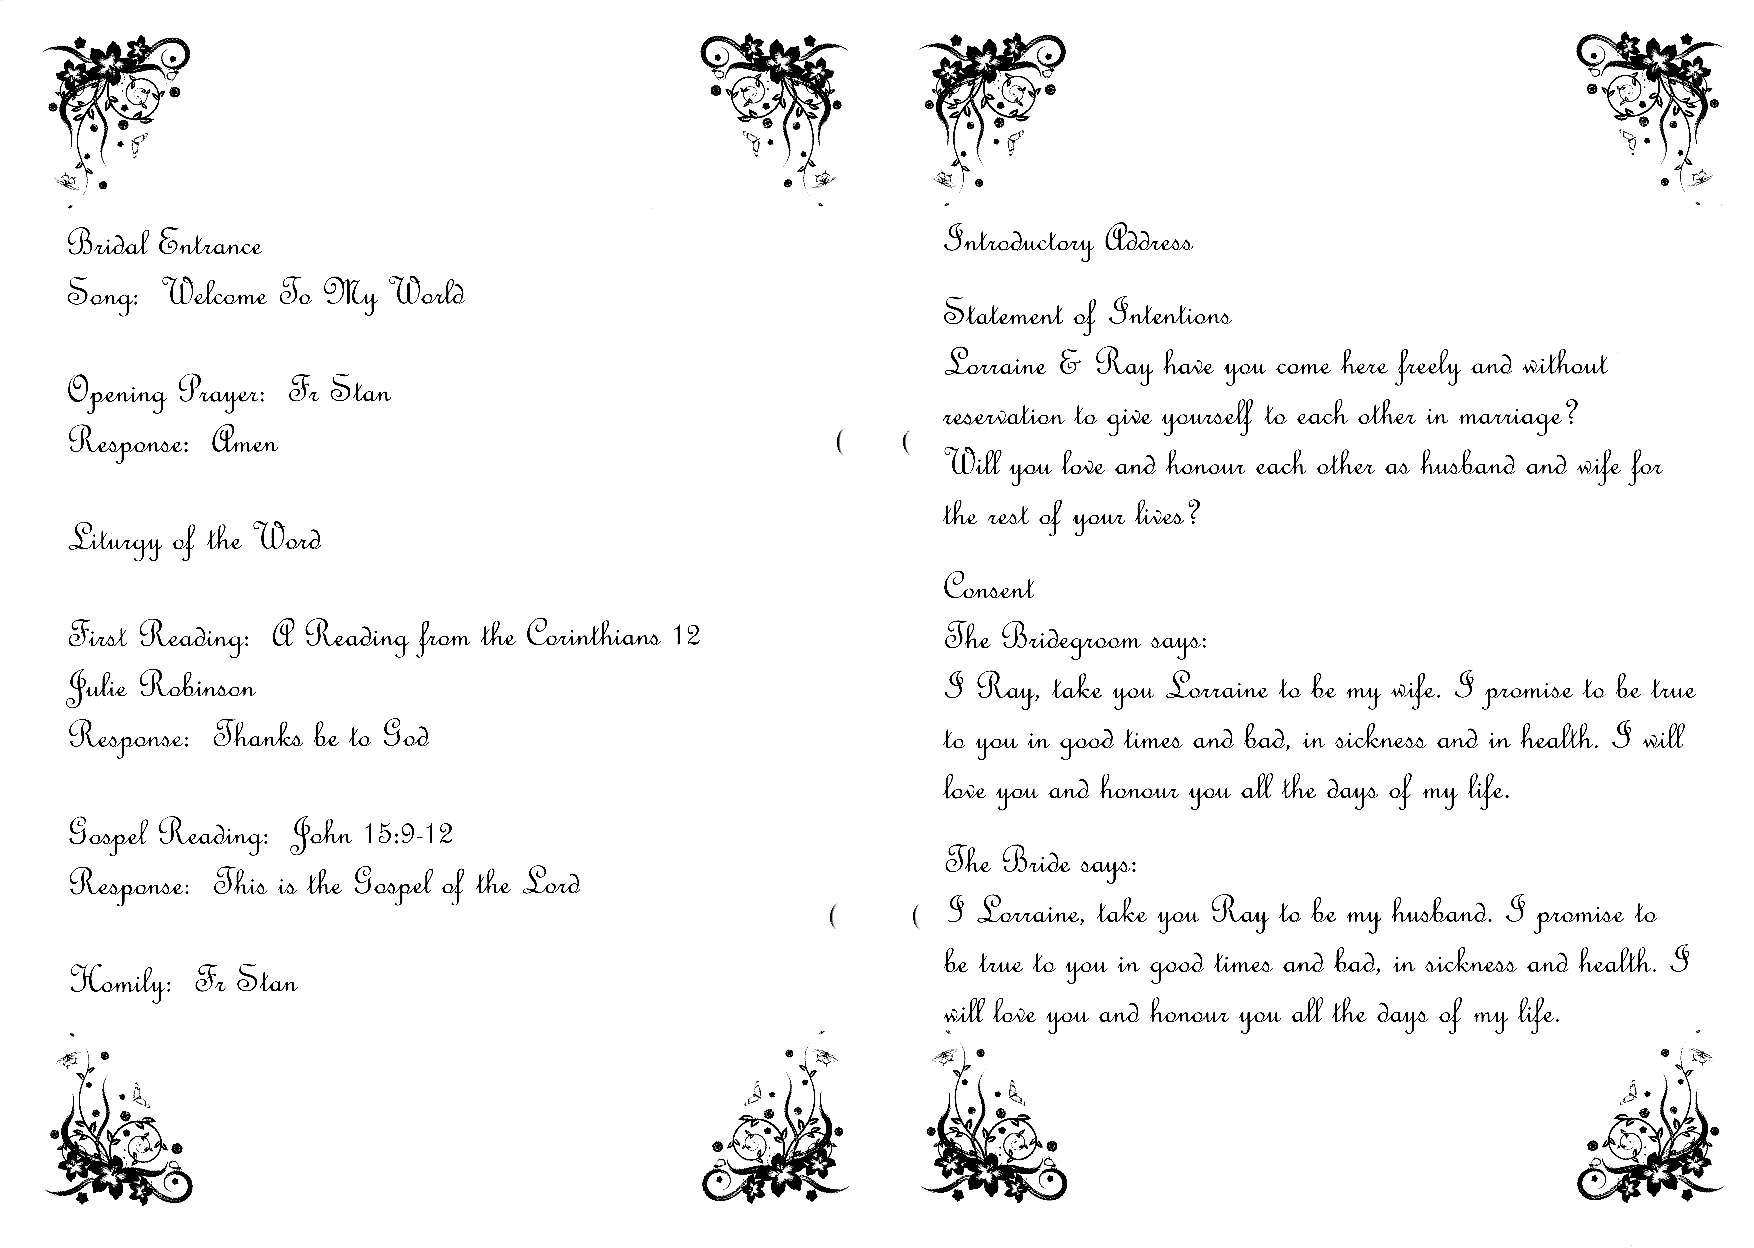 Bridal Entrance
Song: Welcome To My World
Opening Prayer: Fr Stan
Response: Amen
Liturgy of the Word
First Reading: A Reading from the Corinthians 12
Julie Robinson
Response: Thanks be to God
Gospel Reading: John 15:9-12
Response: This is the Gospel of the Lord
Homily: Fr Stan
Introductory Address
Statement of Intentions
Lorraine & Ray have you come here freely and without
reservation to give yourself to each other in marriage?
Will you love and honour each other as husband and wife for
the rest of your lives?
Consent
The Bridegroom says:
I Ray, take you Lorraine to be my wife. I promise to be true
to you in good times and bad, in sickness and in health. I will
love you and honour you all the days of my life.
The Bride says:
I Lorraine, take you Ray to be my husband. I promise to
be true to you in good times and bad, in sickness and health. I
will love you and honour you all the days of my life.